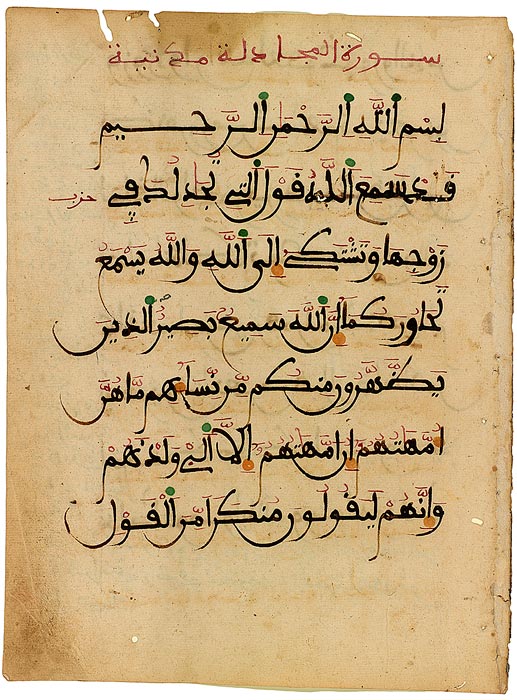 سورة المجادلة مدنية
بسم الله الرحمن الرحيم
قد سمع الله قول التي تجدلك في
حزب
زوجها وتشتكي إلى الله والله يسمع
تحاوركما إن الله سميع بصير الذين
يظهرون منكم من نسائهم ما هن
أمهتهم إن أمهتهم إلا التي ولدنهم
وإنهم ليقولون منكرا من القول